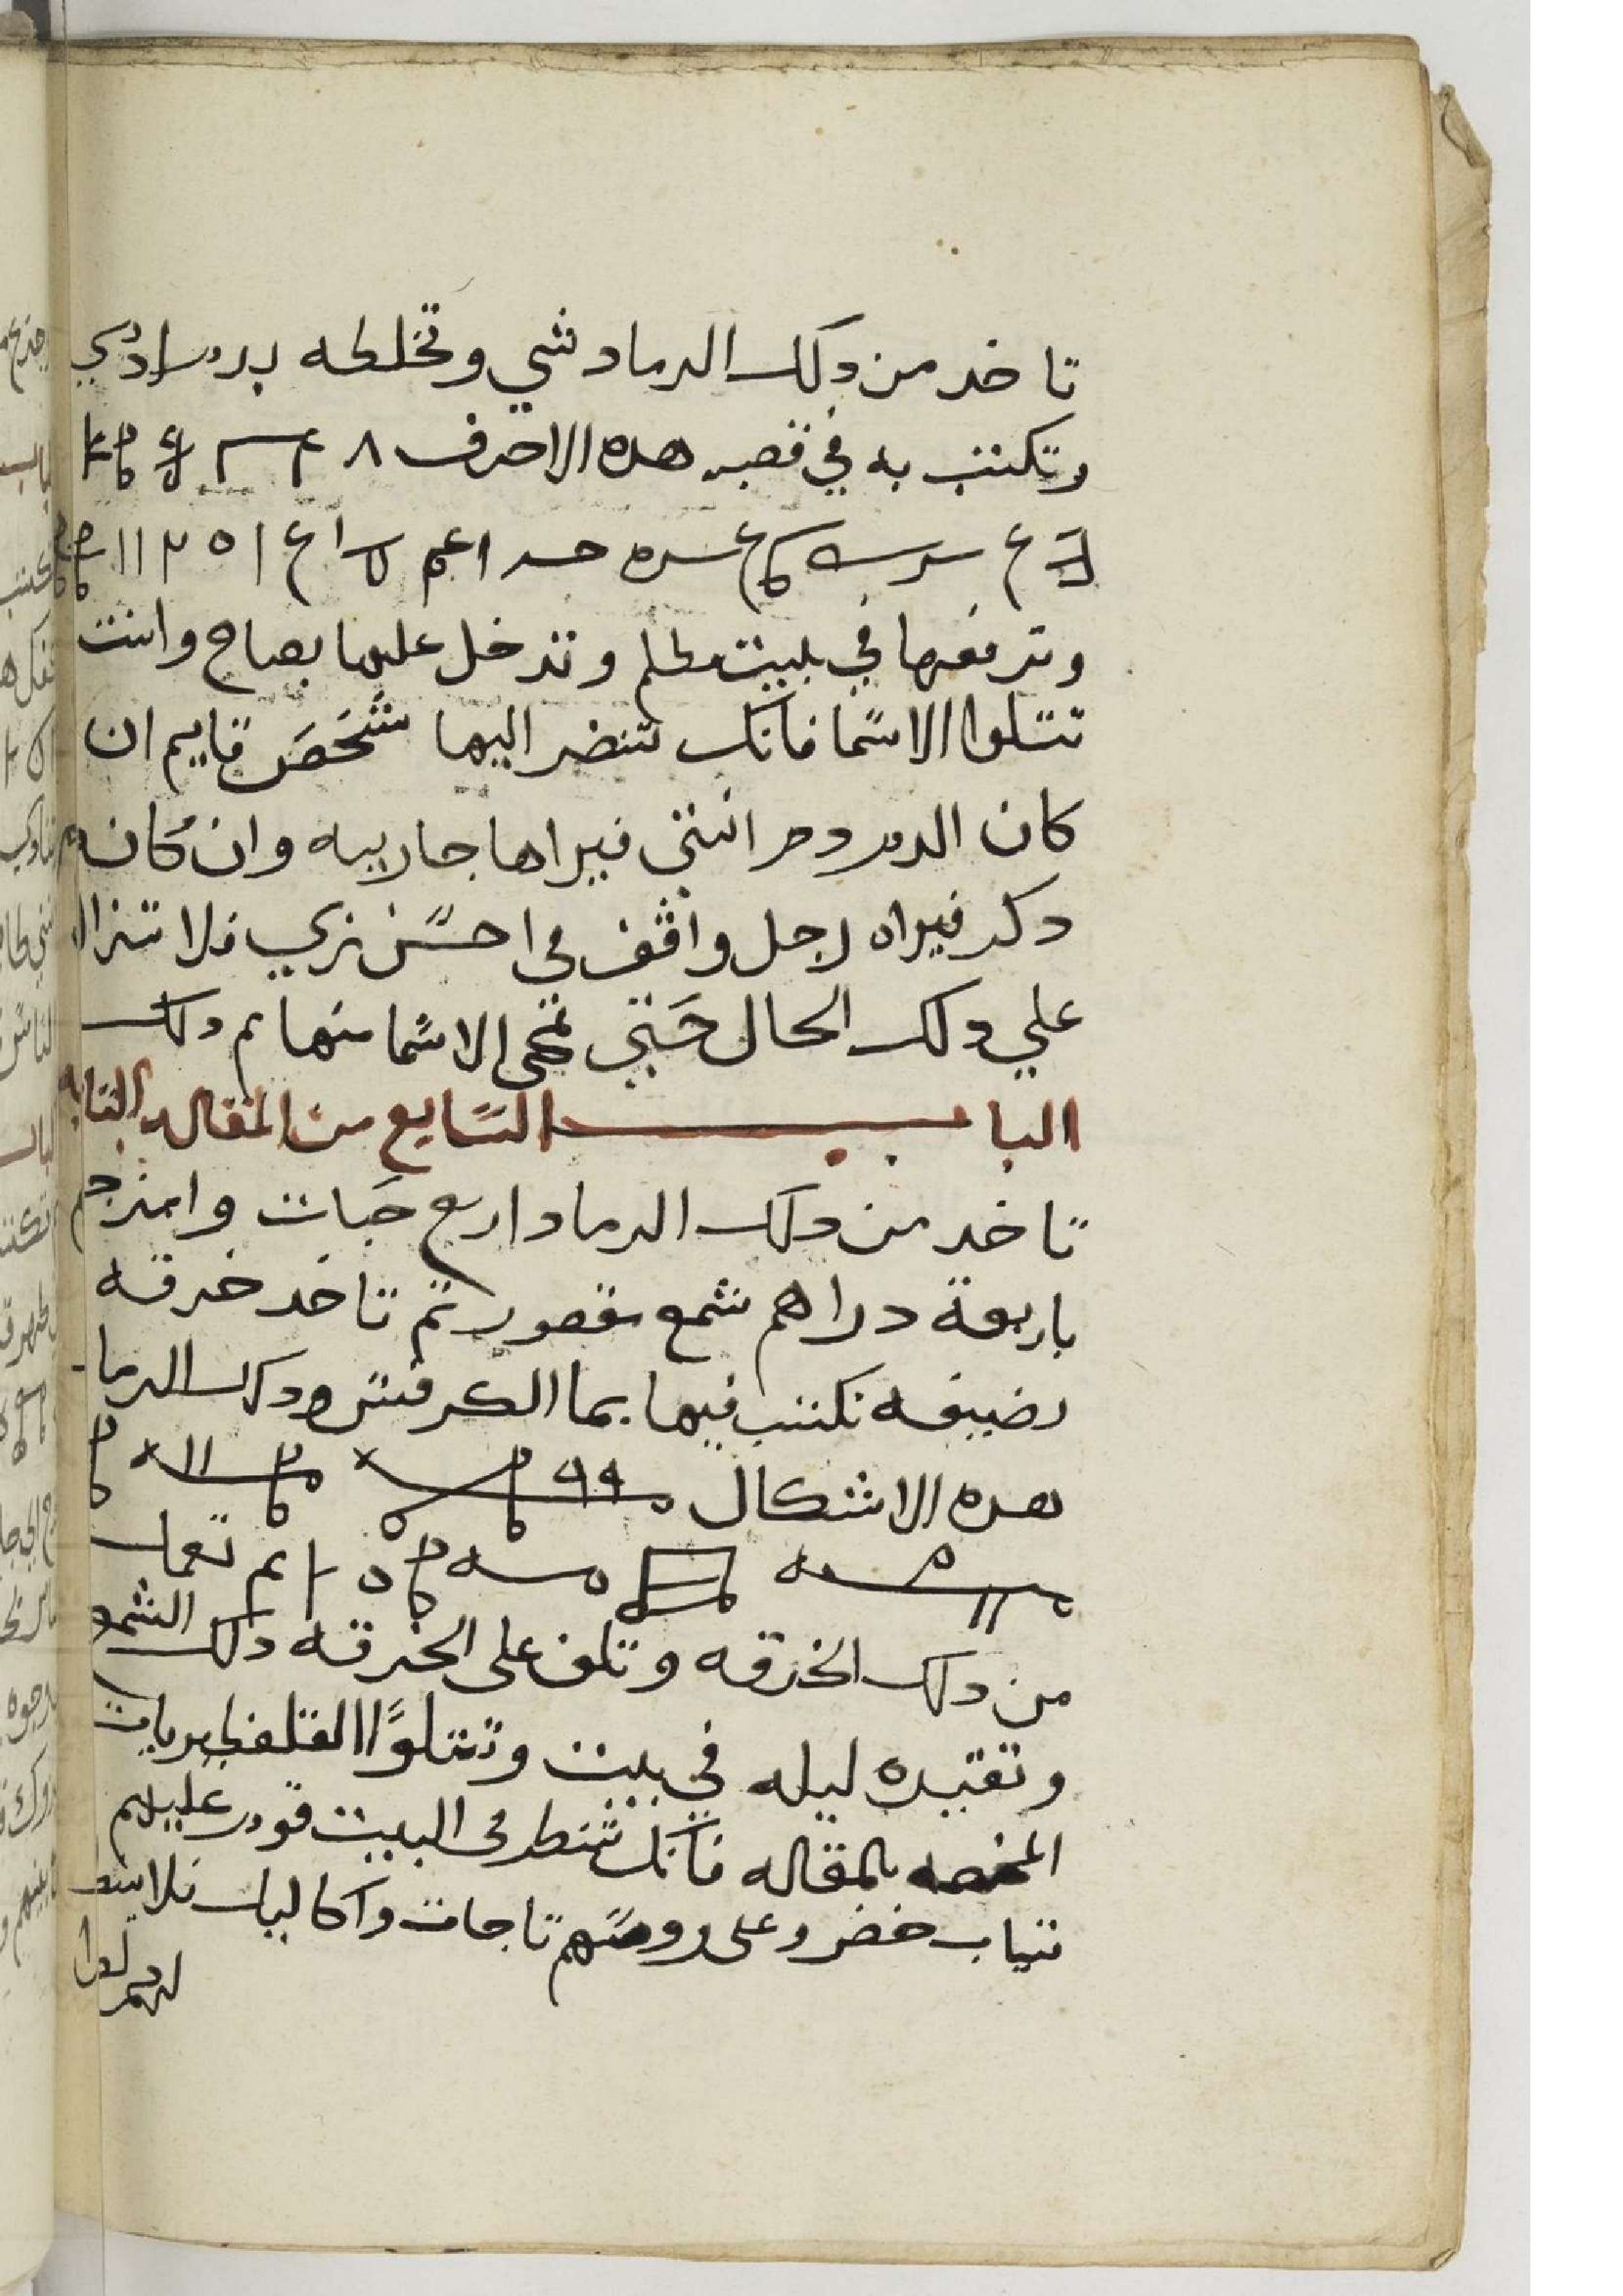 تاخد من دلك الرماد شي وتخلطه بدم ادمي
وتكتب به في قصبه هده الاحرف ٨
ع ا ٥ ٢ ١١
وترفعها في بييت مطلم وتدخل عليها بصباح وانت
تتلوا الاسما فانك تنضر اليها شخص قايم ان
كان الدم دم انتي فيراها جارييه وان كان دم
دكر فيراه رجل واقف في احسن زي فلا تزال
علي دلك الحال حتي تمحى الاسما منها تم دلك
البا ب السابع من المقاله التانيه
تاخد من دلك الرماد اربع حبات وامزجهم
باربعة دراهم شمع مقصور تم تاخد خرقه
نضيفه تكتب فيها بما الكرفس ودلك الرماد
هده الاشكال
تم تعمل
من دلك الخرقه وتلف على الخرقه دلك الشمع
وتقيده ليله في بيت وتتلوا القلفطيريات
المختصه بالمقاله فانك تنطر في البييت قوم عليهم
تياب خضر وعلى روسهم تاجات واكاليل فلا